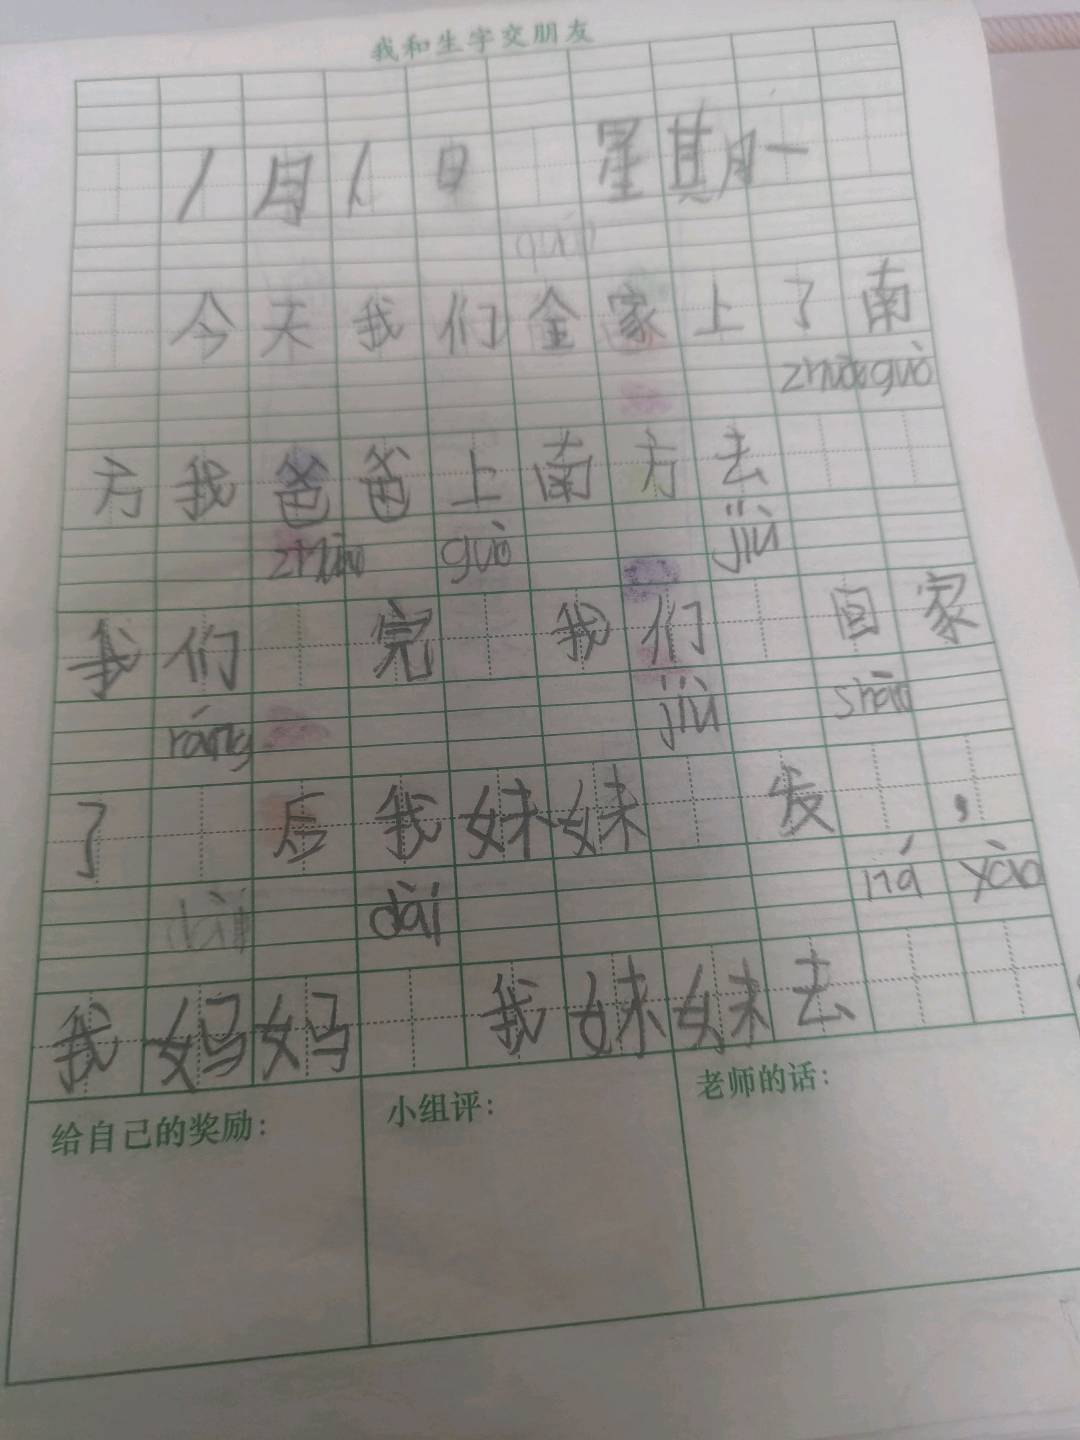 我和生字交朋友
1月1日 星期一
今天我们全家上了南
zhuōguò
方我爸爸上南方去
guò jiù
我们 完 我们 回家
ráng jiù shāo
了 后我妹妹 发 ，
dài ná yào
我妈妈 我妹妹去
给自己的奖励： 小组评： 老师的话：